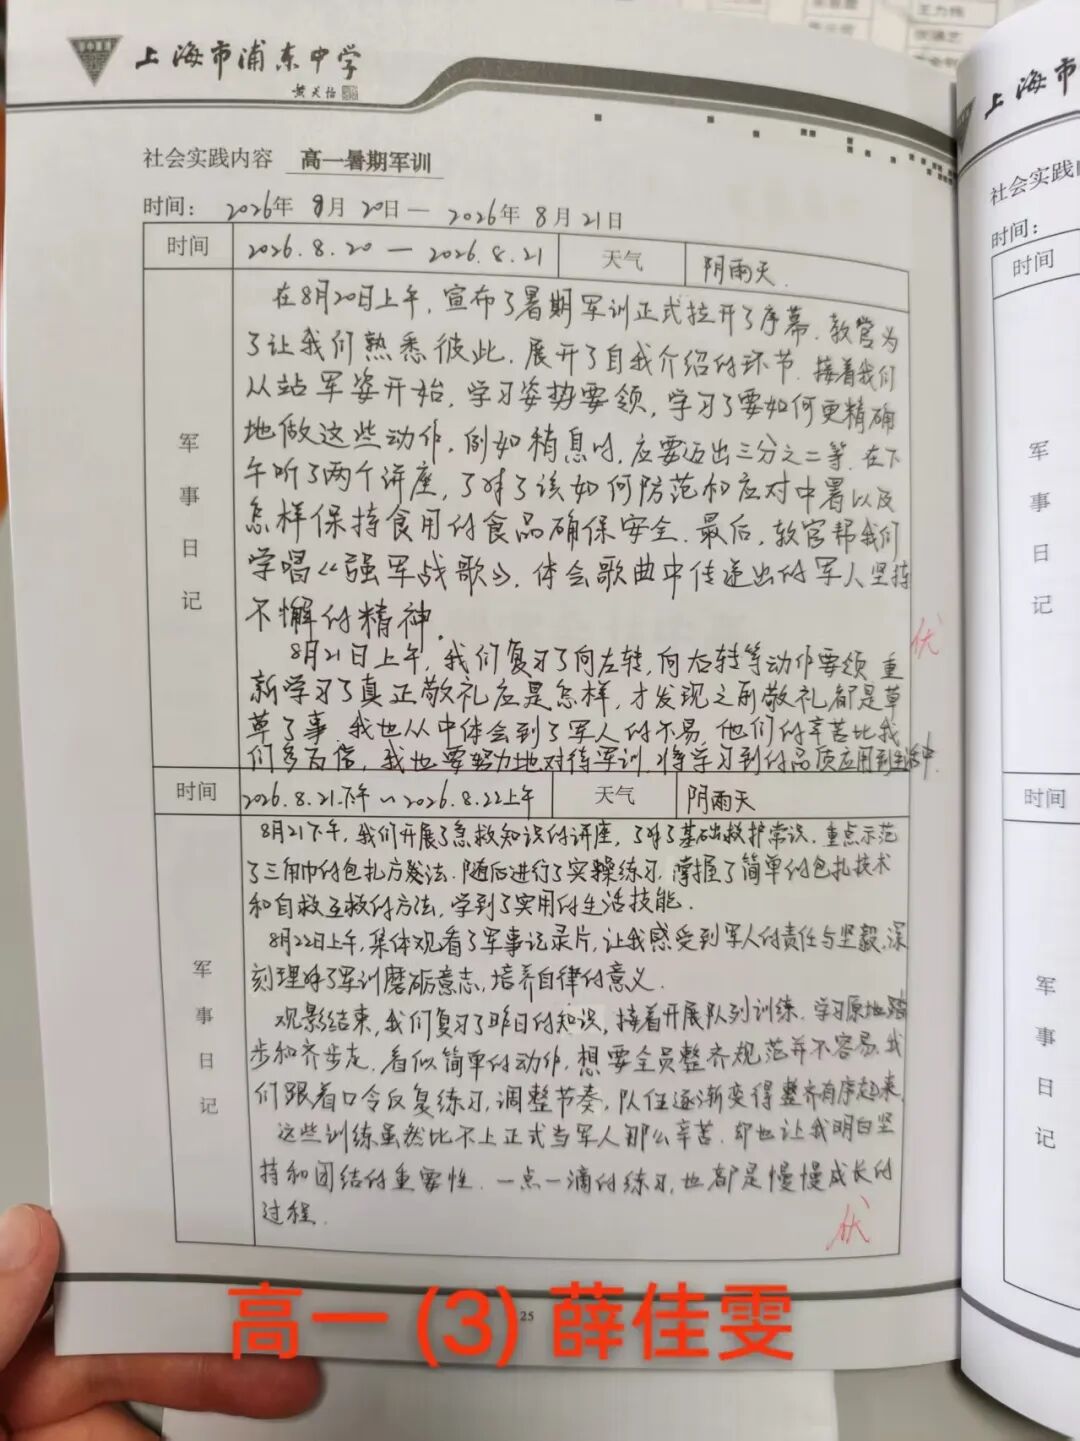 上海市浦东中学
黄炎培
社会实践内容 高一暑期军训
时间: 2026年 8月 20日 — 2026年 8月 21日
时间 2026.8.20 — 2026.8.21 天气 阴雨天.
军事日记
在8月20日上午，宣布了暑期军训正式拉开了序幕. 教官为
了让我们熟悉彼此. 展开了自我介绍的环节. 接着我们
从站军姿开始，学习姿势要领，学习了要如何更精确
地做这些动作. 例如稍息时，应要迈出三分之二等. 在下
午听了两个讲座，了解了该如何防范和应对中署以及
怎样保持食用的食品确保安全. 最后，教官帮我们
学唱《强军战歌》，体会歌曲中传递出的军人坚持
不懈的精神.
8月21日上午，我们复习了向左转，向右转等动作要领 重
新学习了真正敬礼应是怎样，才发现之前敬礼都是草
草了事. 我也从中体会到了军人的不易，他们的辛苦比我
们多百倍，我也要努力地对待军训，将学习到的品质应用到生活中.
时间 2026.8.21下午 ~ 2026.8.22上午 天气 阴雨天
军事日记
8月21下午，我们开展了急救知识的讲座，了解了基础救护常识. 重点示范
了三角巾的包扎方法. 随后进行了实操练习，掌握了简单的包扎技术
和自救互救的方法，学到了实用的生活技能.
8月22日上午，集体观看了军事记录片，让我感受到军人的责任与坚毅，深
刻理解了军训磨砺意志，培养自律的意义.
观影结束，我们复习了昨日的知识，接着开展队列训练. 学习原地踏
步和齐步走，看似简单的动作，想要全员整齐规范并不容易，我
们跟着口令反复练习，调整节奏，队伍逐渐变得整齐有序起来.
这些训练虽然比不上正式当军人那么辛苦. 却也让我明白坚
持和团结的重要性. 一点一滴的练习，也都是慢慢成长的
过程.
25
高一 (3) 薛佳雯
上海市
社会实践
时间:
时间
军事日记
时间
军事日记